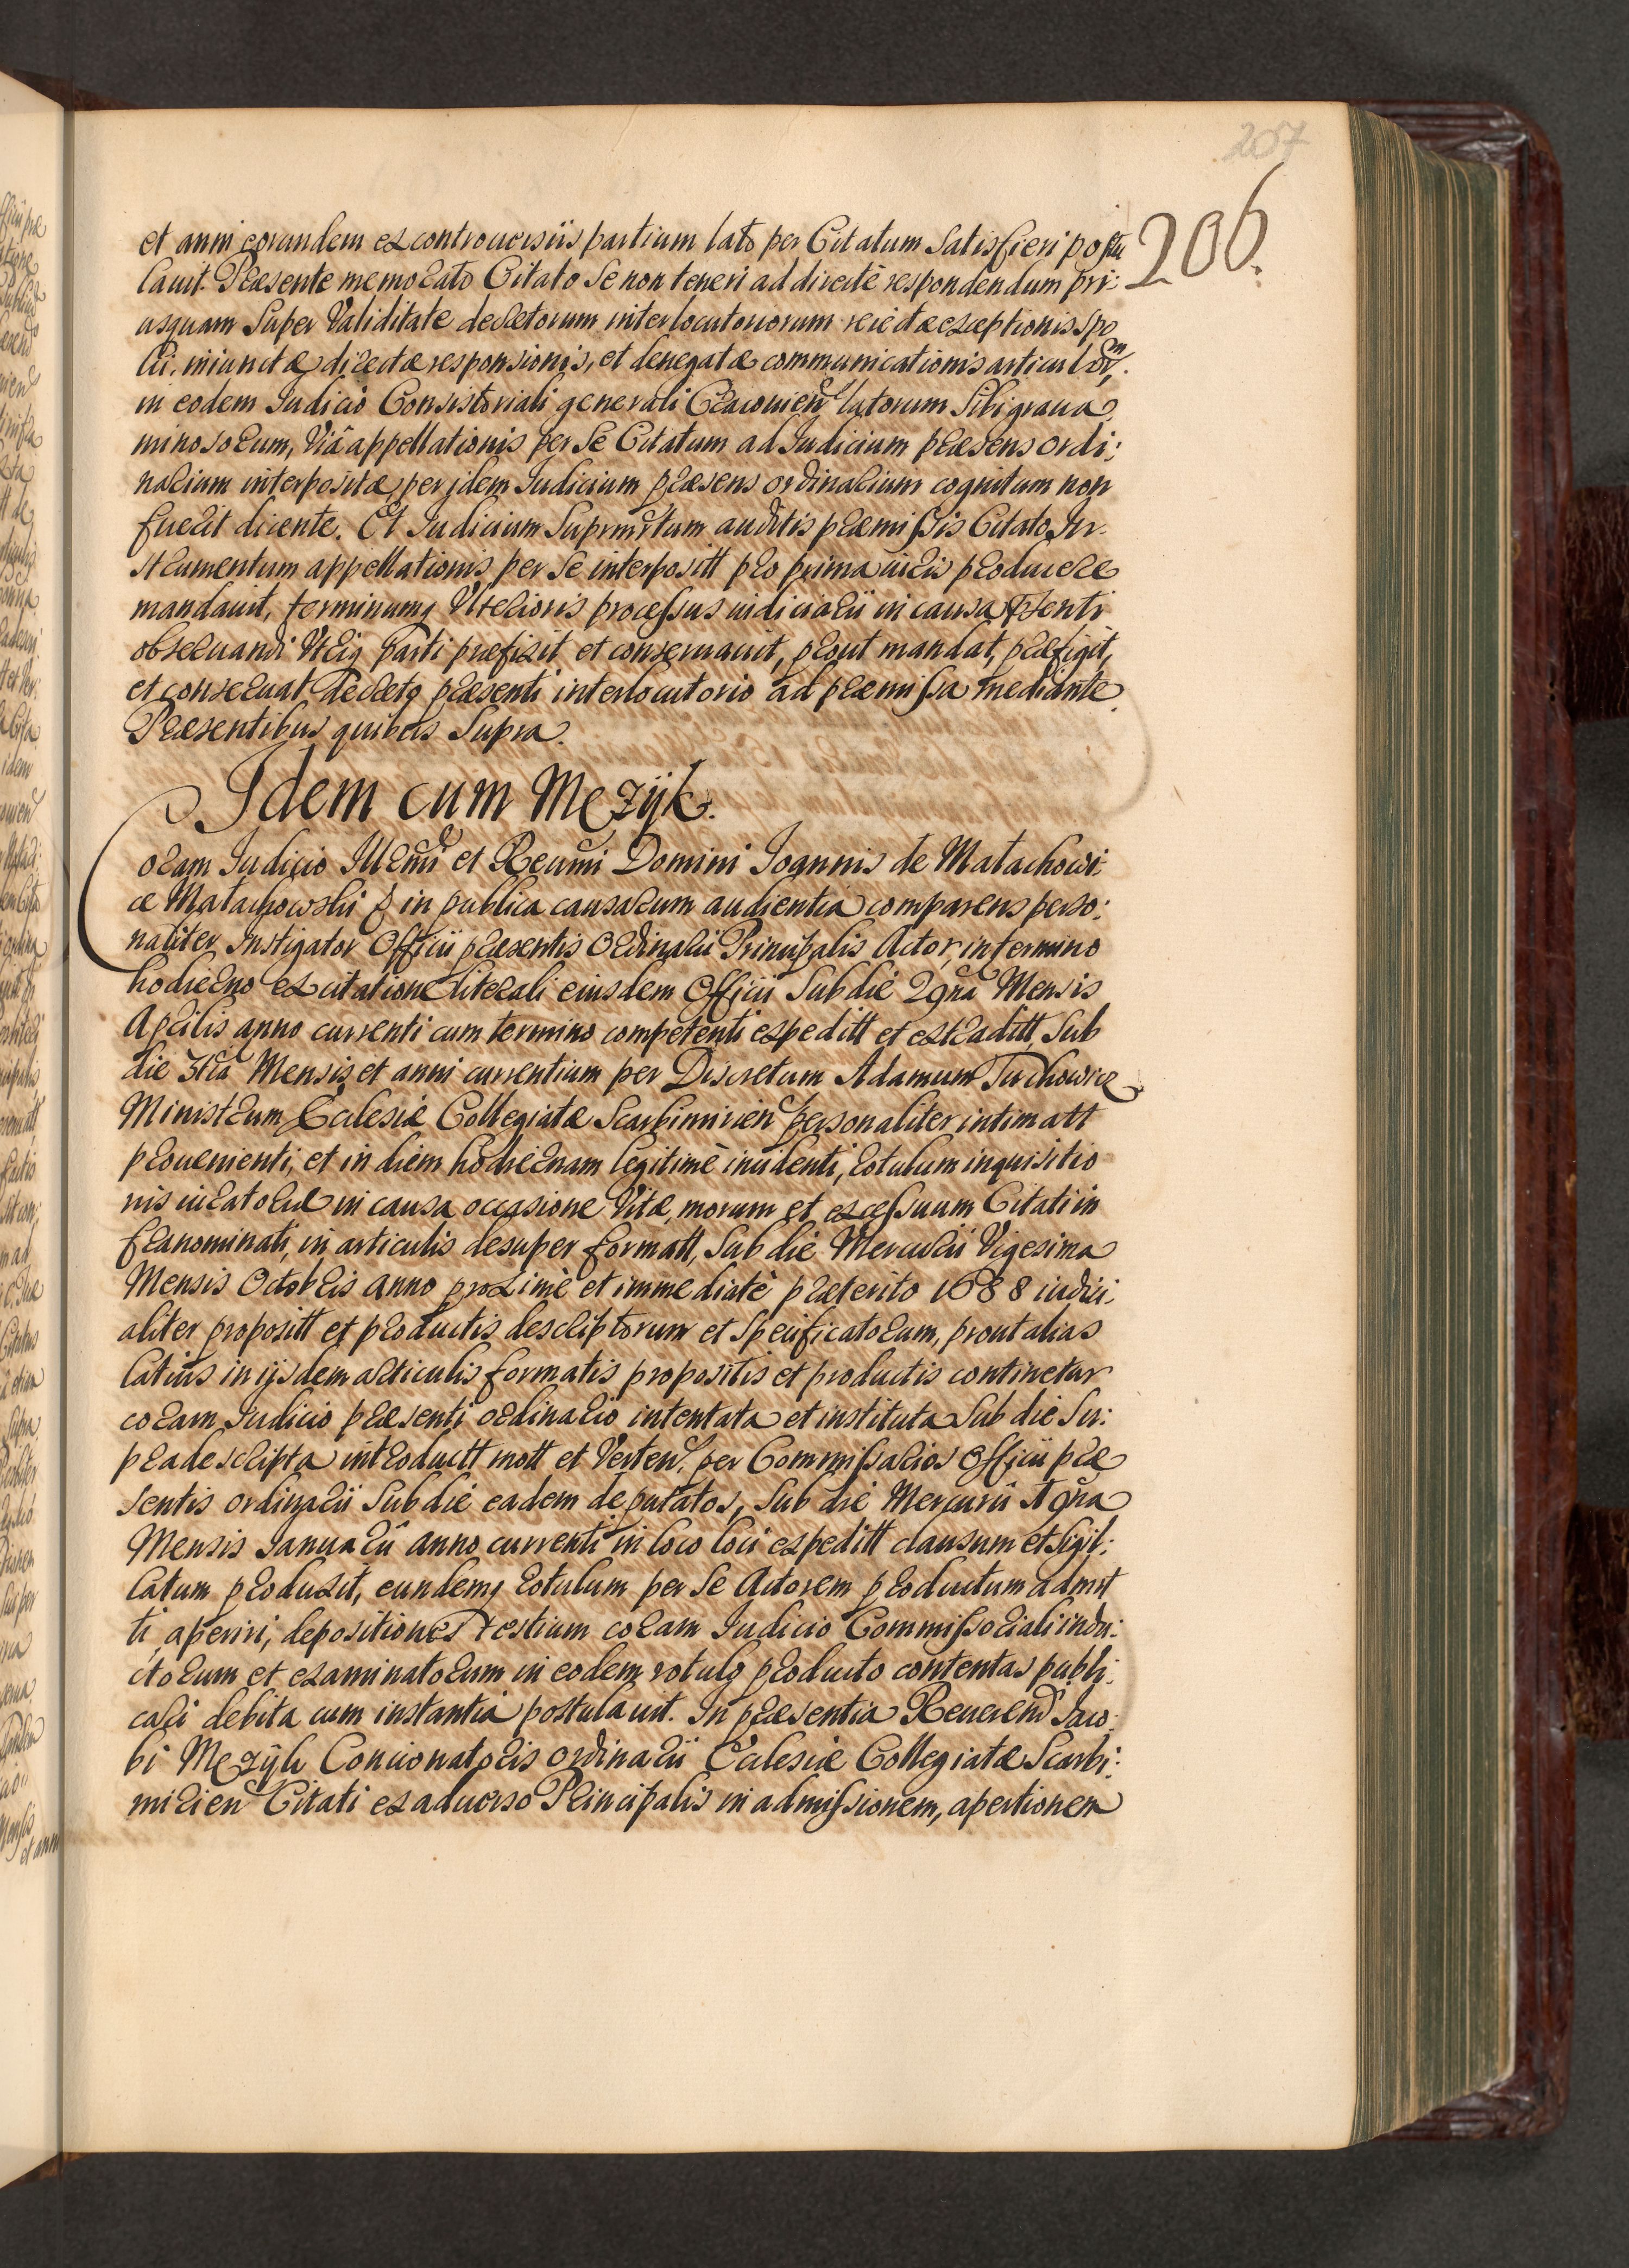 207
206.
et anni eorundem ex controuersiis partium lato per Citatum Satisfieri postu
lauit. Præsente memorato Citato Se non teneri ad directè respondendum pri:
usquam Super Validitate decretorum interlocutoriorum reiectæ exceptionis Spo
lii, iniunctæ directæ responsionis, et denegatæ communicationis articulorm,
in eodem Iudicio Consistoriali generali Cracouien latorum Sibi graua
minosorum, Viâ appellationis per Se Citatum ad Iudicium præsens ordi:
narium interpositæ, per idem Iudicium præsens ordinarium cognitum non
fuerit dicente. Et Iudicium Suprmtum auditis præmissis Citato In
strumentum appellationis per Se interpositt pro prima iuris producere
mandauit, terminumq Vlterioris processus iudiciarii in causa præsenti
obseruandi Vtriq Parti præfixit et conseruauit, prout mandat, præfigit,
et conseruat Decreto præsenti interlocutorio ad præmissa mediante.
Præsentibus quibus Supra.
Idem cum Męzÿk.
Coram Iudicio Illmi et Reumi Domini Ioannis de Małachowi:
ce Małachowski & in publica causarum audientia comparens perso:
naliter Instigator Officii præsentis Ordinarii Principalis Actor, in termino
hodierno ex citatione literali eiusdem Officii Sub die 29na Mensis
Aprilis anno currenti cum termino competenti expeditt et extraditt, Sub
die 3tia Mensis et anni currentium per Discretum Adamum Tuchowicz
Ministrum Ecclesiæ Collegiatæ Scarbimirien personaliter intimatt
prouenienti, et in diem hodiernam legitimè incidenti, rotulum inquisitio
nis iuratoriæ in causa occasione Vitæ, morum et excessuum Citati in
franominati, in articulis desuper formatt, Sub die Mercurii Vigesima
Mensis Octobris anno proximè et immediatè præterito 1688 iudici:
aliter propositt et productis descriptorum et Specificatorum, prout alias
latius in ijsdem articulis formatis propositis et productis continetur
coram Iudicio præsenti ordinario intentata et instituta Sub die Su:
pradescripta introductt mott et Verten. per Commissarios Officii præ
sentis ordinarii Sub die eadem deputatos, Sub die Mercurii 19na
Mensis Ianuarii anno currenti in loco loci expeditt clausum et Sigil:
latum produxit, eundemq rotulum per Se Actorem productum admit
ti, aperiri, depositiones testium coram Iudicio Commissoriali indu:
ctorum et examinatorum in eodem rotulo producto contentas publi:
cari debita cum instantia postulauit. In præsentia Reuerend Iaco:
bi Męzÿk Concionatoris ordinarii Ecclesiæ Collegiatæ Scarbi:
mirien Citati ex aduerso Principalis in admissionem, apertionem